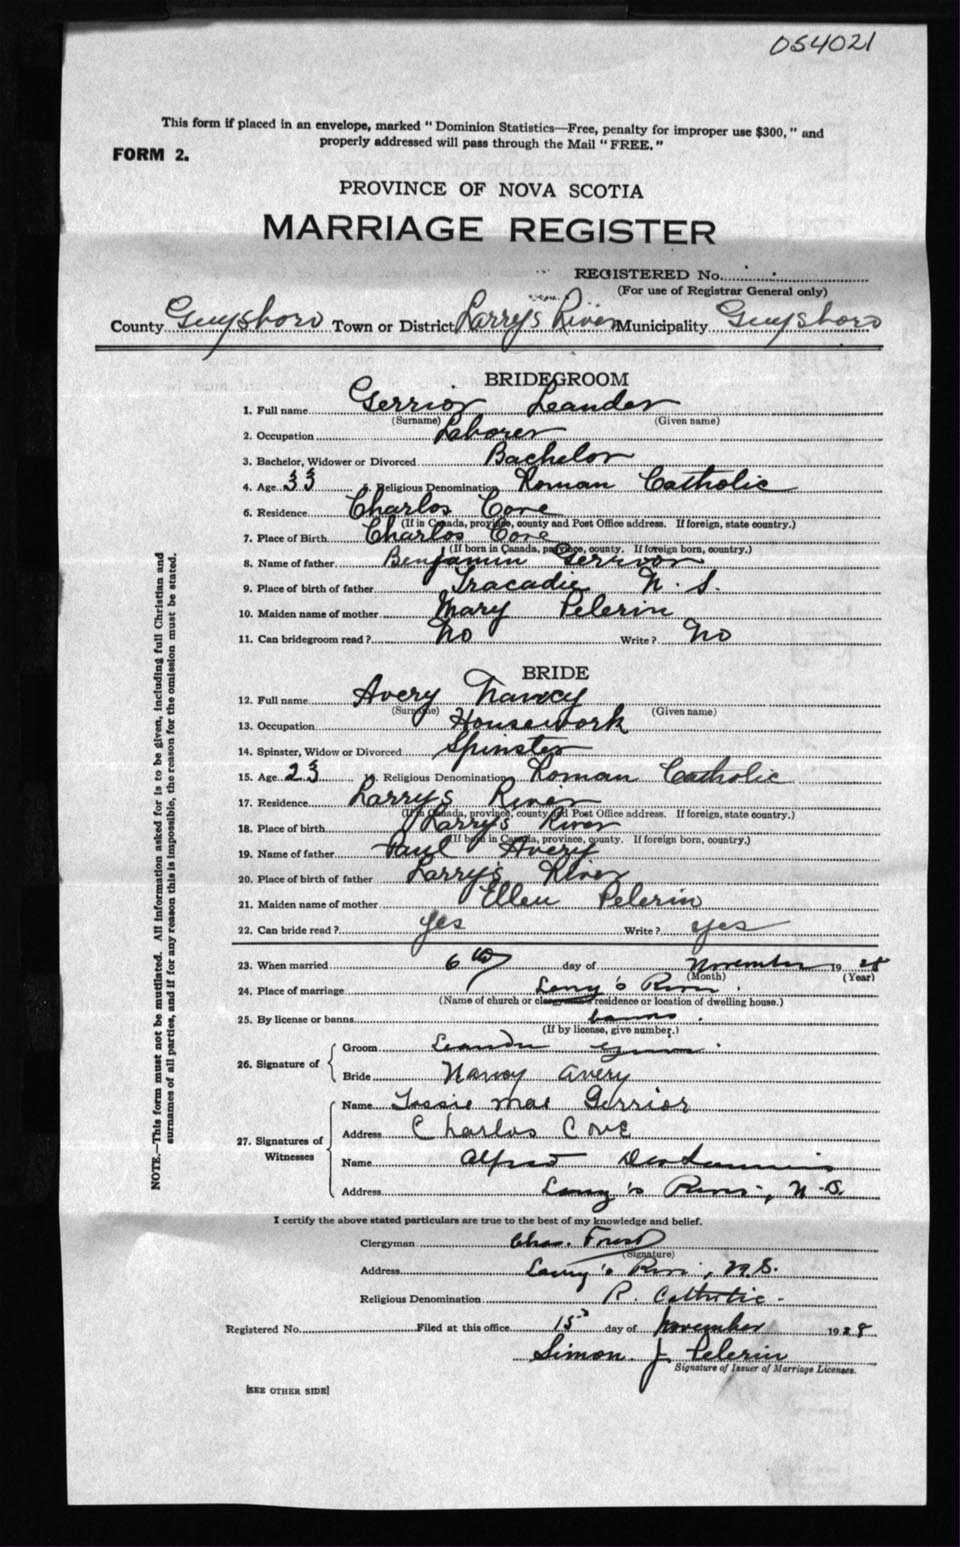 054021
This form if placed in an envelope, marked "Dominion Statistics—Free, penalty for improper use $300," and
properly addressed will pass through the Mail "FREE."
FORM 2.
PROVINCE OF NOVA SCOTIA
MARRIAGE REGISTER
REGISTERED No.
(For use of Registrar General only)
County Guysboro Town or District Larrys River Municipality Guysboro
BRIDEGROOM
1. Full name Gerrior Leander
(Surname) (Given name)
2. Occupation Laborer
3. Bachelor, Widower or Divorced Bachelor
4. Age 33 5. Religious Denomination Roman Catholic
6. Residence Charlos Cove
(If in Canada, province, county and Post Office address. If foreign, state country.)
7. Place of Birth Charlos Cove
(If born in Canada, province, county. If foreign born, country.)
8. Name of father Benjamin Gerrior
9. Place of birth of father Tracadie N. S.
10. Maiden name of mother Mary Pelerin
11. Can bridegroom read? No Write? No
BRIDE
12. Full name Avery Nancy
(Surname) (Given name)
13. Occupation Housework
14. Spinster, Widow or Divorced Spinster
15. Age 23 16. Religious Denomination Roman Catholic
17. Residence Larrys River
(If in Canada, province, county and Post Office address. If foreign, state country.)
18. Place of birth Larrys River
(If born in Canada, province, county. If foreign born, country.)
19. Name of father Paul Avery
20. Place of birth of father Larrys River
21. Maiden name of mother Ellen Pelerin
22. Can bride read? Yes Write? yes
23. When married 6th day of November 1928
(Month) (Year)
24. Place of marriage Larry's River.
(Name of church or clergyman's residence or location of dwelling house.)
25. By license or banns banns.
(If by license, give number.)
26. Signature of
Groom Leander
Bride Nancy Avery
27. Signatures of Witnesses
Name Tessie Mae Gerrior
Address Charlos Cove
Name Alfred
Address Larry's River, N.S.
I certify the above stated particulars are true to the best of my knowledge and belief.
Clergyman Chas. Forest
(Signature)
Address Larry's River, N.S.
Religious Denomination R. Catholic.
Registered No. Filed at this office 15 day of November 1928
Simon J. Pelerin
Signature of Issuer of Marriage Licenses.
[SEE OTHER SIDE]
NOTE.—This form must not be mutilated. All information asked for is to be given, including full Christian and
surnames of all parties, and if for any reason this is impossible, the reason for the omission must be stated.